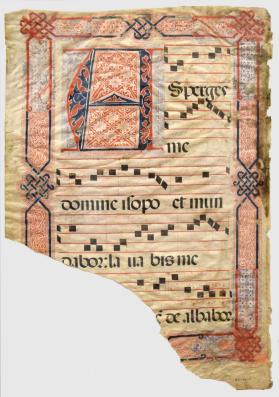 Asperges
me
domine isopo et mun
dabor: la ua bis me
& de albabor